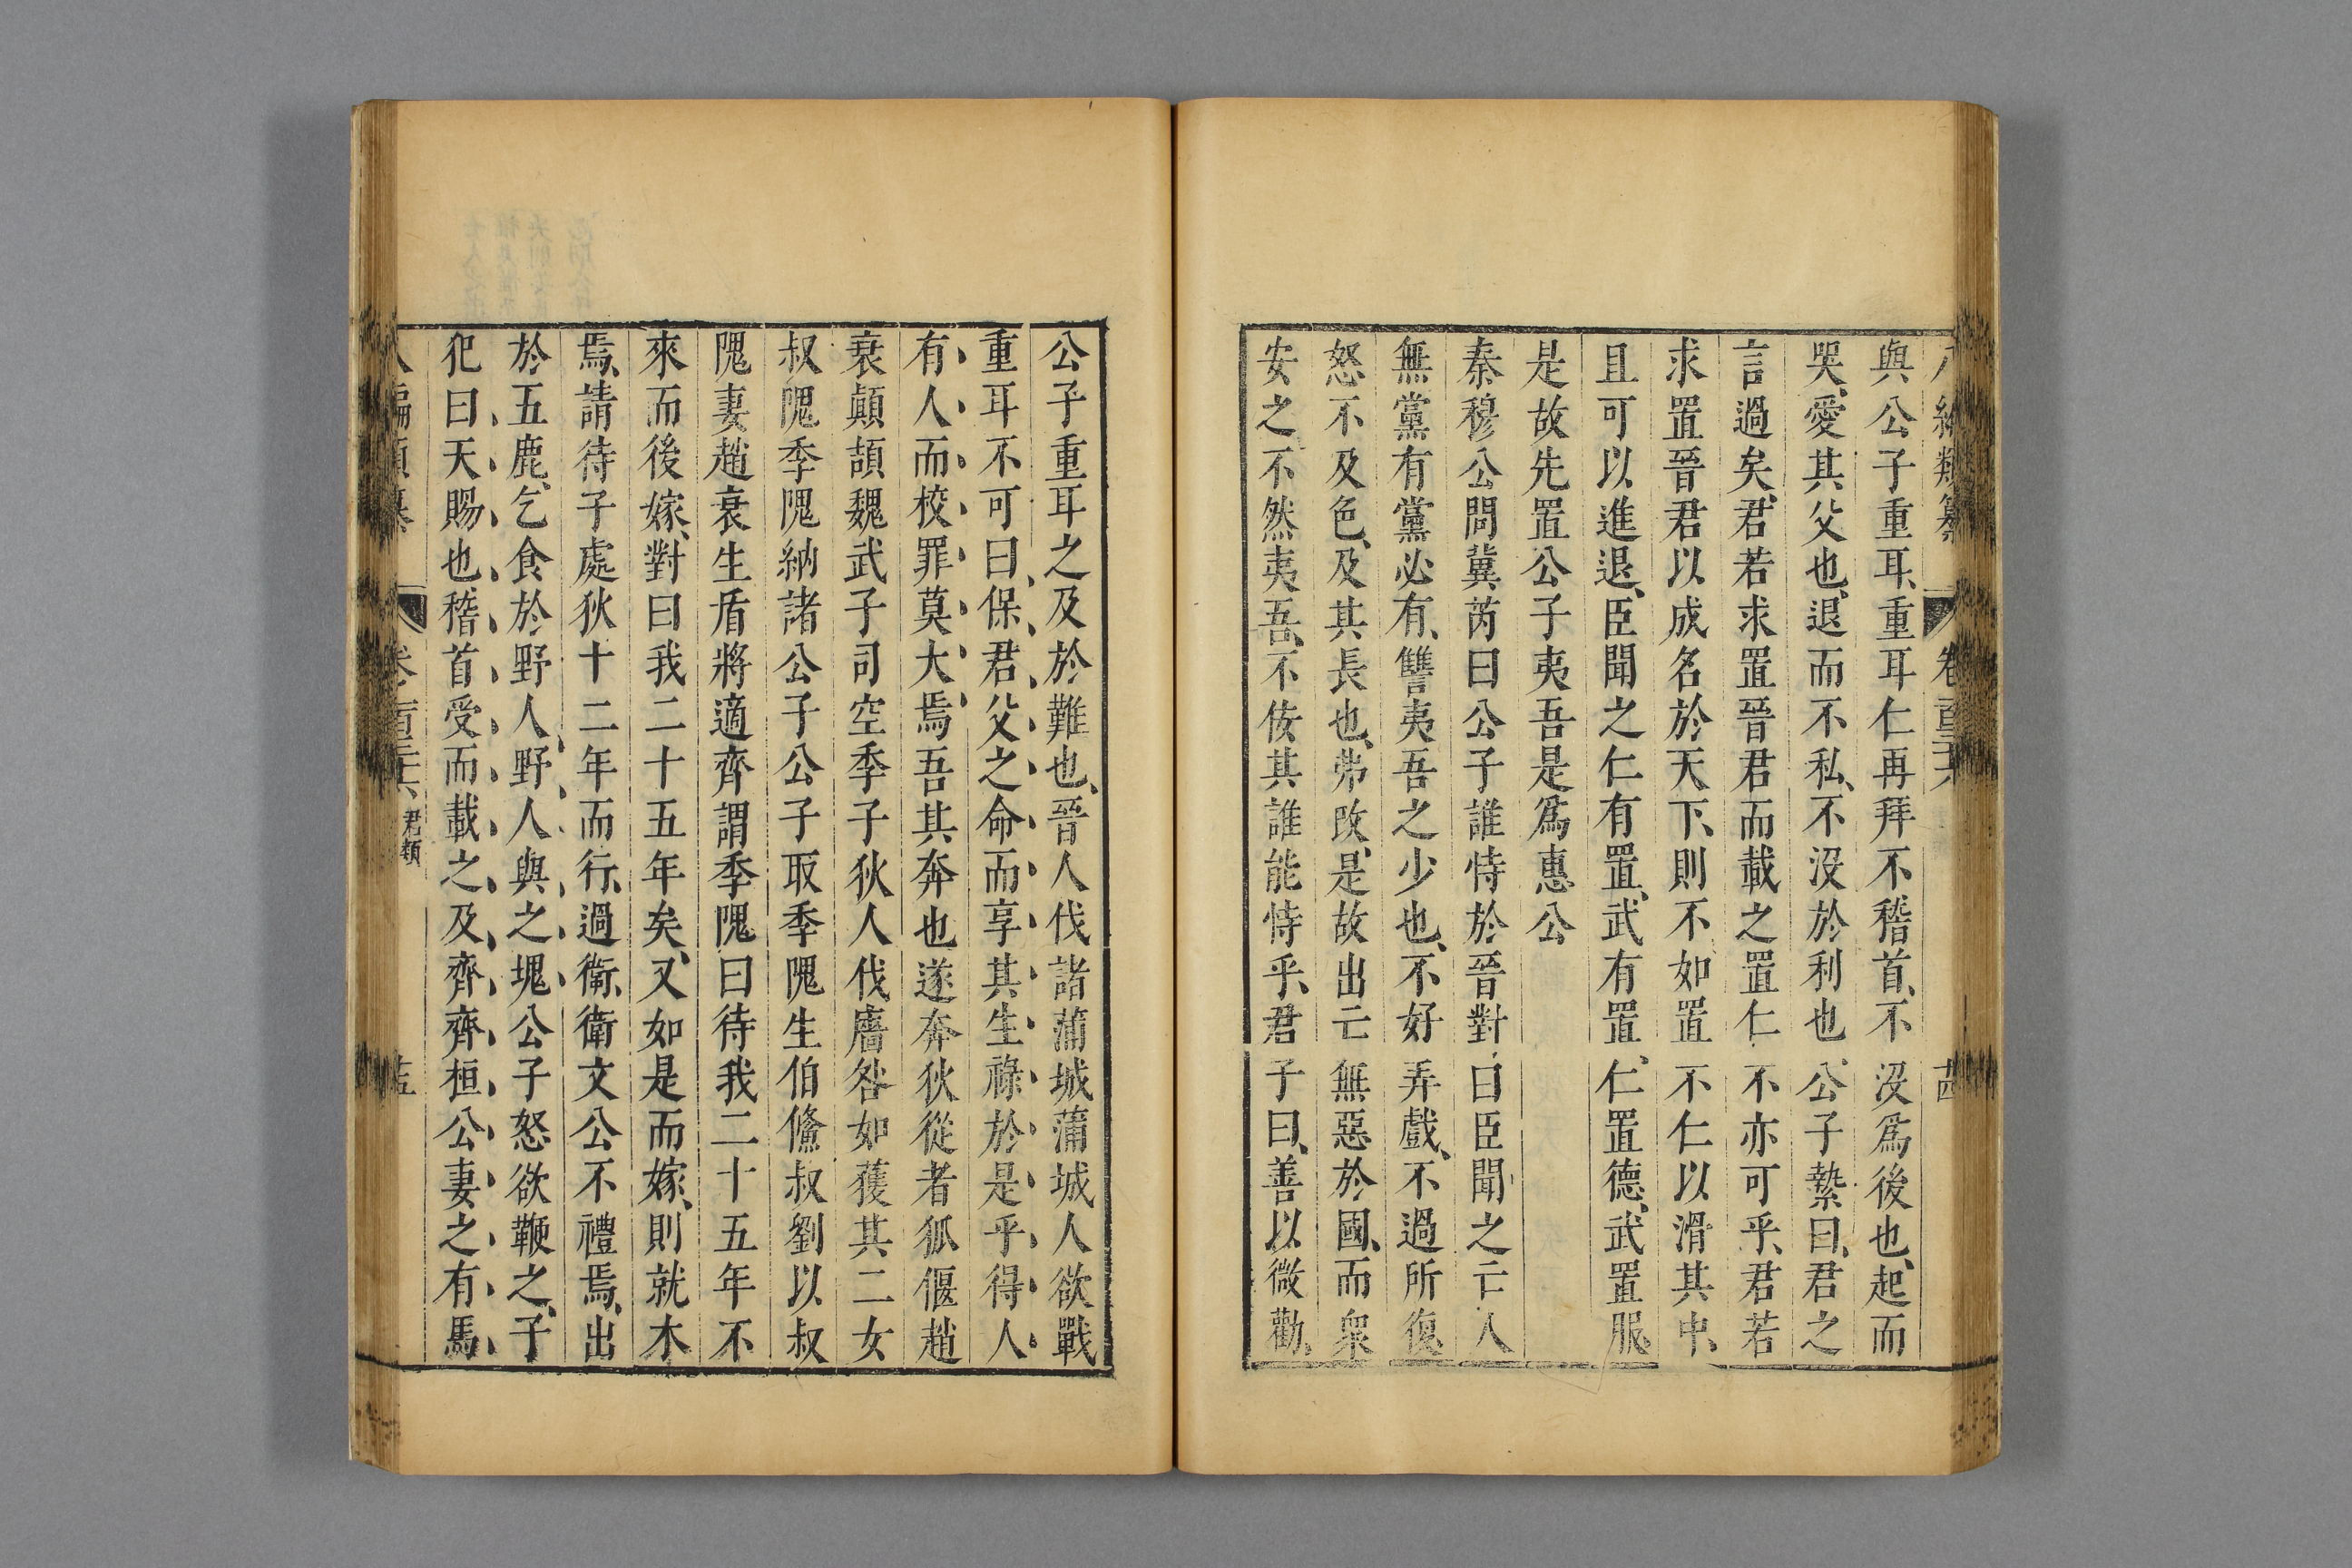 編類纂 卷 十四
與公子重耳、重耳仁再拜不稽首、不沒爲後也、起而
哭、愛其父也、退而不私、不沒於利也、公子縶曰、君之
言過矣、君若求置晉君而載之置仁不亦可乎、君若
求置晉君以成名於天下、則不如置不仁以滑其中、
且可以進退、臣聞之仁有置、武有置、仁置德、武置服、
是故先置公子夷吾是爲惠公
秦穆公問冀芮曰公子誰恃於晉對曰臣聞之亡人
無黨有黨必有讐夷吾之少也、不好弄戲、不過所復、
怒不及色、及其長也、弗改、是故出亡無惡於國、而衆
安之不然夷吾、不佞其誰能恃乎、君子曰、善以微勸、
公子重耳之及於難也、晉人伐諸蒲城蒲城人欲戰
重耳不可曰、保君父之命而享其生祿於是乎得人
有人而校罪莫大焉吾其奔也遂奔狄從者狐偃趙
衰顛頡魏武子司空季子狄人伐廧咎如獲其二女
叔隗季隗納諸公子公子取季隗生伯鯈叔劉以叔
隗妻趙衰生盾將適齊謂季隗曰待我二十五年不
來而後嫁、對曰我二十五年矣、又如是而嫁、則就木
焉、請待子處狄十二年而行、過衛、衛文公不禮焉、出
於五鹿、乞食於野人、野人與之塊公子怒欲鞭之、子
犯曰天賜也、稽首受而載之及齊齊桓公妻之有馬
編類纂 卷 君類 十五